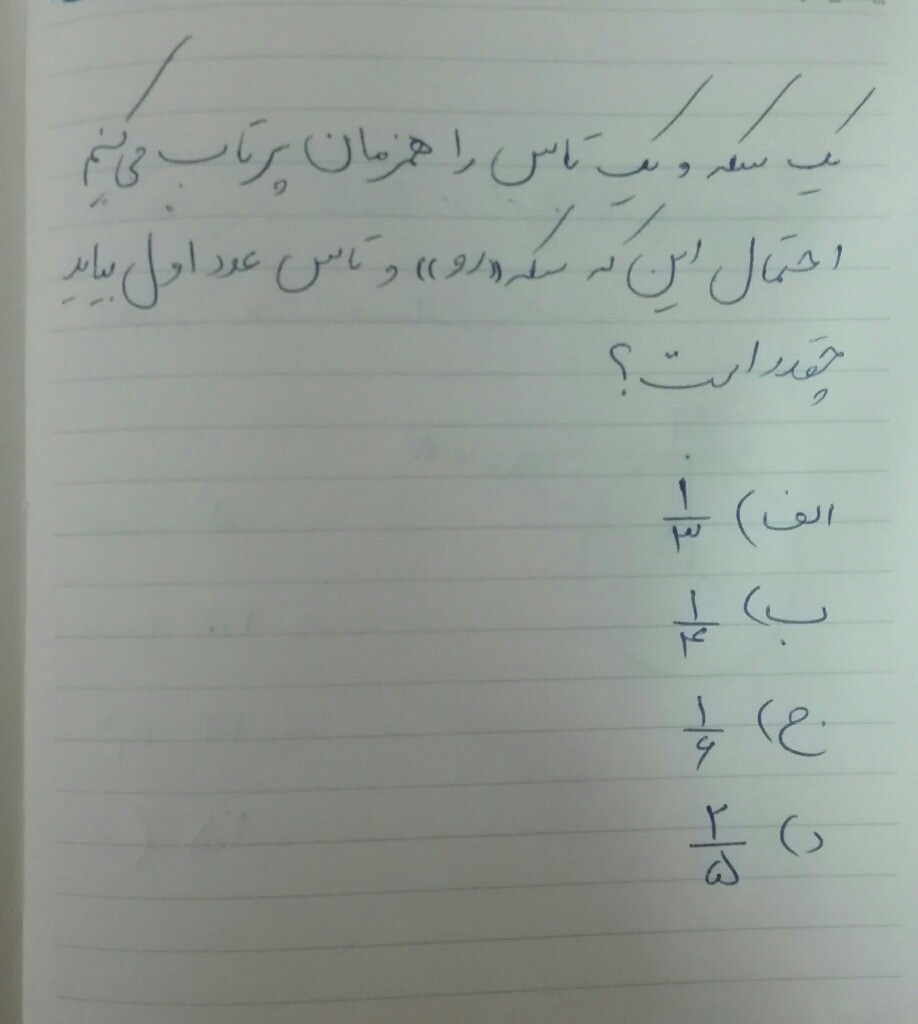 یک سکه و یک تاس را همزمان پرتاب می‌کنیم
احتمال این که سکه «رو» و تاس عدد اول بیاید
چقدر است؟
الف) ۱/۳
ب) ۱/۴
ج) ۱/۶
د) ۲/۵